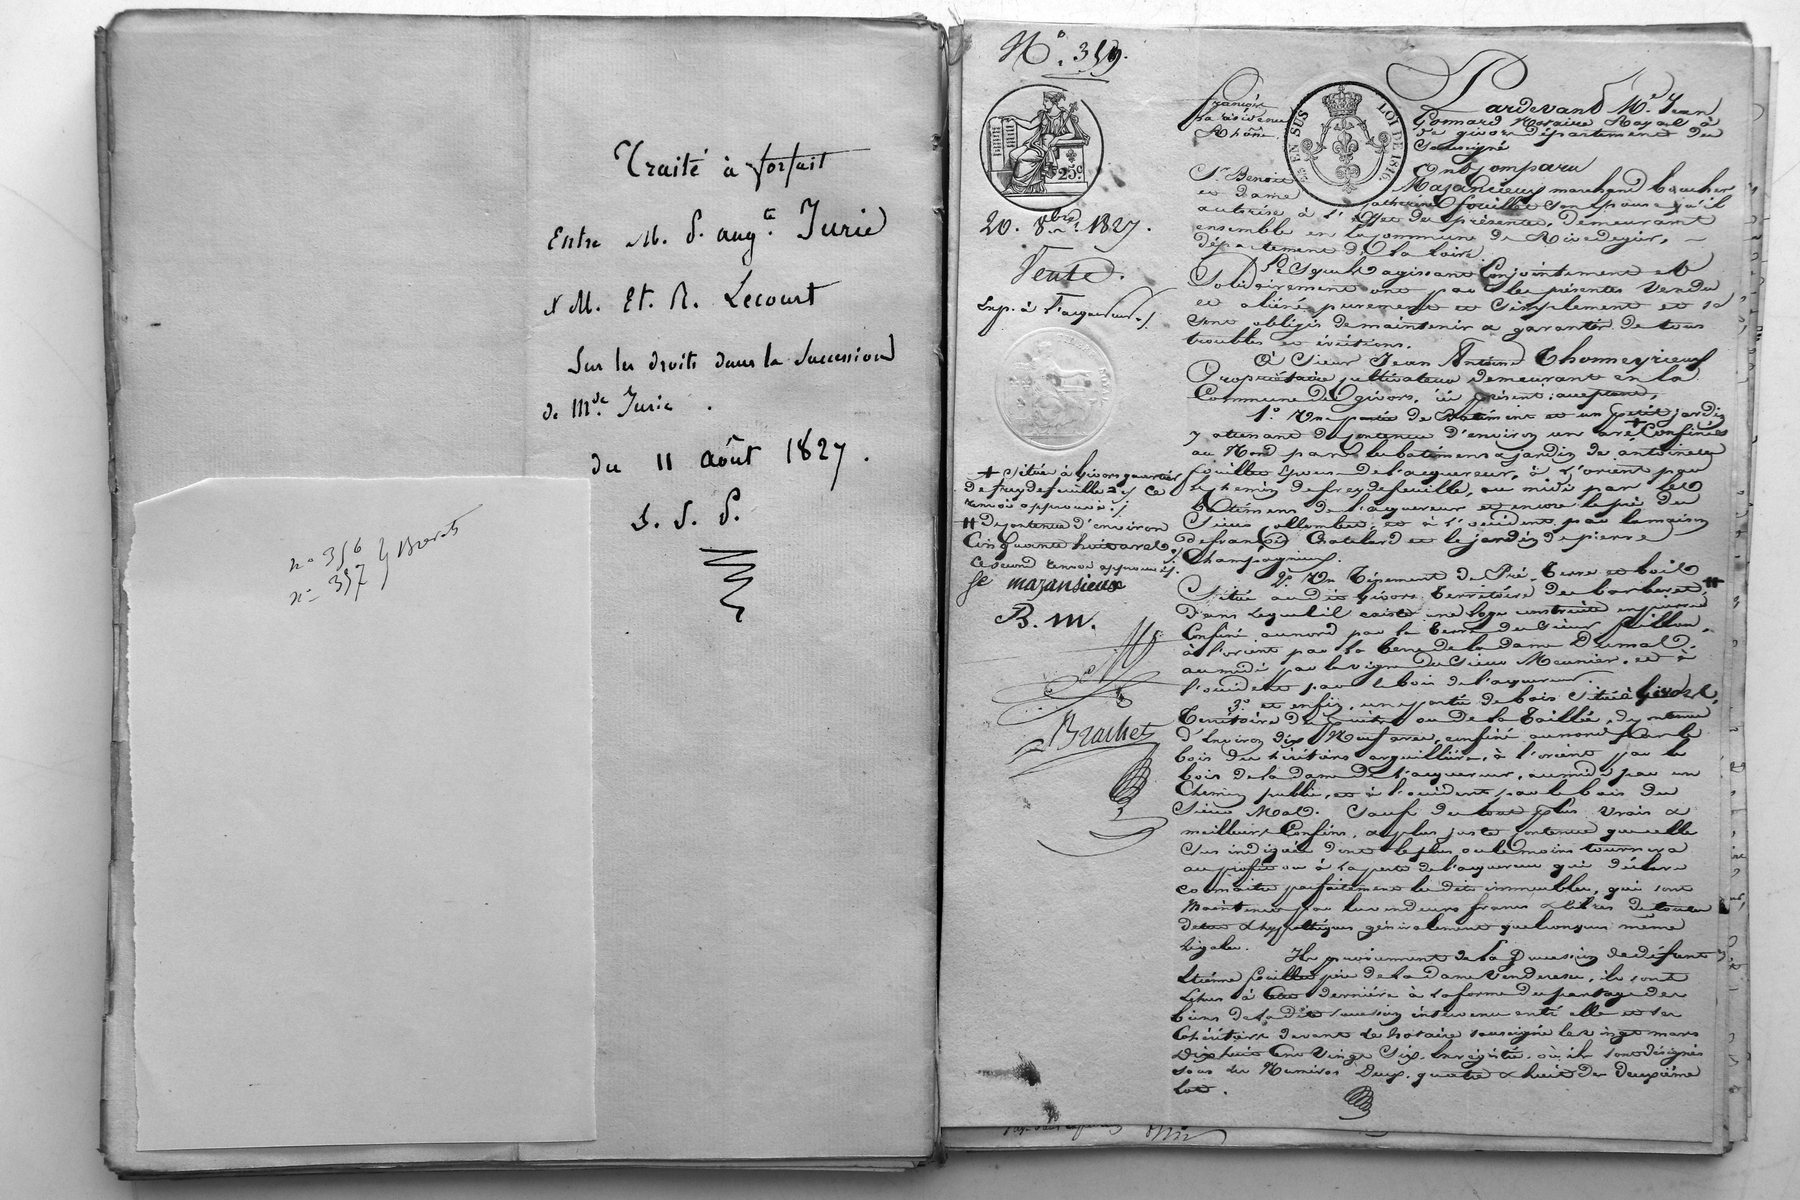 Traité à forfait
Entre M. P. aug.te Jurie
& M. Et. R. Lecourt
Sur les droits dans la Succession
de Mde. Jurie .
du 11 août 1827 .
S. S. P.
n° 356
n° 357
N° 359.
25c
20. 8bre. 1827.
Vente.
Exp. à l'acquéreur
+ située à Givors quartier
de freydefeuille ce
renvoi approuvé
# de contenue d'environ
Cinquante huit ares
ce second renvoi approuvé
mazansieux
B. m.
Brachet
EN SUS LOI DE 1816
Pardevant Me. Jean
Gonnard Notaire Royal à
françois
la résidence de givors département du
Rhône Soussigné
Ont Comparu
Sr. Benoit Mazancieux marchand boucher
et dame catherine fouilloux son épouse qu'il
autorise à l'effet des présentes, demeurant
ensemble en la commune de Rivedegier,
département de la Loire.
Lesquels agissant Conjointement et
Solidairement ont par les présentes Vendu
et aliéné purement et Simplement et se
sont obligés de maintenir & garantir de tous
troubles et évictions.
à Sieur Jean Antoine Thomeyrieux
Propriétaire cultivateur demeurant en la
Commune de givors, ici présent & acceptant,
1°. Une partie de Batiment et un petit jardin
y attenant de contenue d'environ un are Confinés
au Nord par les batimens & jardin de antoinette
fouilloux épouse de l'acquéreur, à l'orient par
le chemin de freydefeuille, au midi par les
batimens de l'acquéreur et encore le pré du
Sieur et à l'occident par la maison
de françois Chatelard et le jardin de pierre
Champagnieux.
2°. Un Tènement de Pré, Terre et bois #
Situé au dit givors territoire de barberet
Dans lequel il existe une loge construite en pierre
Confiné au nord par la terre du Sieur
à l'orient par la terre de la dame Dumas.
au midi par la vigne du Sieur Meunier, et à
l'occident par le bois de l'acquéreur.
3°. et enfin, une partie de bois située à Givors,
Territoire de ou de la Taillée, de contenue
d'Environ dix Neuf ares, confiné au nord par le
bois des héritiers arguillière, à l'orient par le
bois de la dame de l'acquéreur, au midi par un
Chemin public, et à l'occident par le bois du
Sieur Mald. Sauf de tout plus vrais &
meilleurs Confins, & plus juste contenue que celle
Sus indiquée dont le plus ou le moins tournera
au profit ou à la perte de l'acquéreur qui déclare
connaitre parfaitement les dits immeubles, qui sont
Maintenus par les vendeurs francs & libres de toutes
dettes & hypothèques généralement quelconques même
légales.
Ils proviennent de la Succession de défunt
Etienne fouilloux père de la dame Venderesse, ils sont
échus à Cette dernière à la forme du partage des
biens de la dite succession intervenu entre elle et ses
Cohéritiers devant le Notaire soussigné le vingt mars
Dix huit Cent Vingt Six, Enregistré, où ils sont désignés
sous les Numéros Deux, quatre & huit du deuxième
lot.